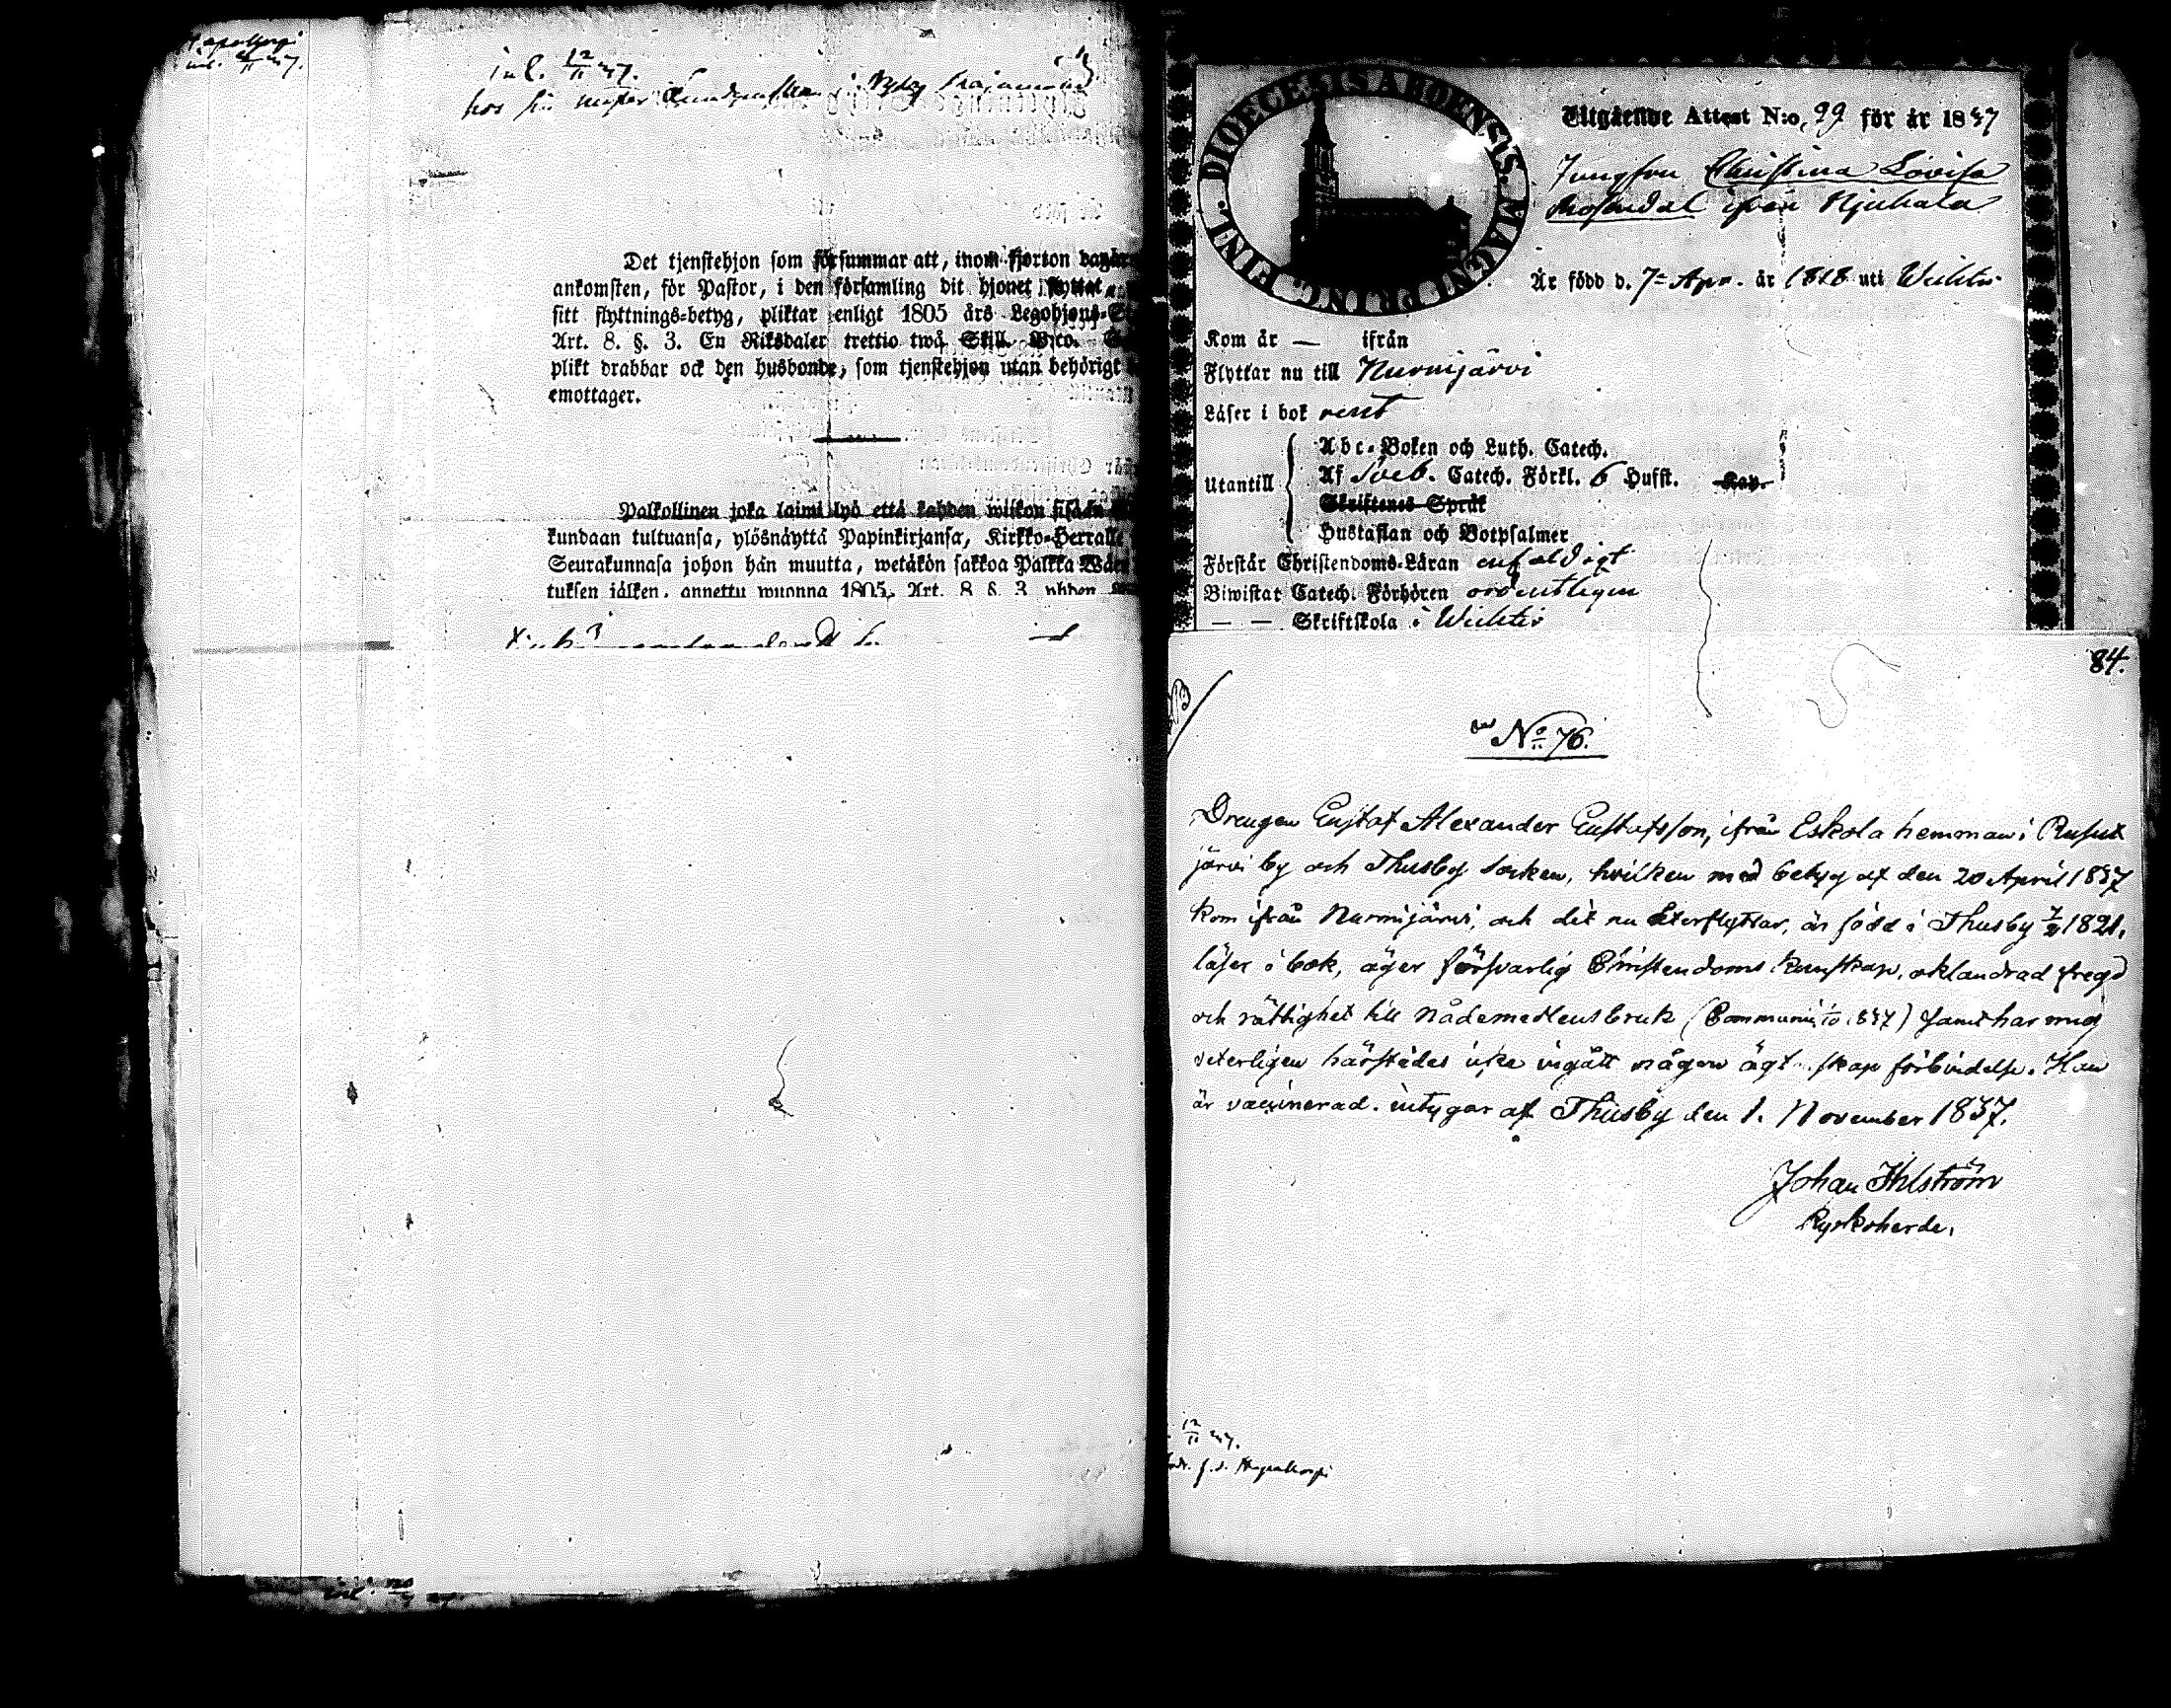 inl. 12/11 37.
hos sin i Nyby
Det tjenstehjon som försummar att, inom fjorton dagar
ankomsten, för Pastor, i den församling dit hjonet flyttat,
sitt flyttnings-betyg, pliktar enligt 1805 års Legohjons-S
Art. 8. §. 3. En Riksdaler trettio twå Skill. B:co.
plikt drabbar ock den husbonde, som tjenstehjon utan behörigt
emottager.
Palkollinen joka laimi lyö että kahden wiikon sisään
kundaan tultuansa, ylösnäyttä Papinkirjansa, Kirkko-Herralle
Seurakunnasa johon hän muutta, wetäkön sakkoa Palkka Wäen
tuksen jälken, annettu wuonna 1805, Art. 8 §. 3 yhden
DIOECESIS ABOENSIS. MAGNI PRINC. FINL.
Utgående Attest N:o 99 för år 1837
Jungfru Christina Lovisa
Rosendal ifrån Njuhala
Är född d. 7= Apr. år 1818 uti Wichtis
Kom år — ifrån
Flyttar nu till Nurmijärvi
Läser i bok rent
Utantill
Abc-Boken och Luth. Catech.
Af Sveb. Catech. Förkl. 6 Hufst. Kap.
Skriftenes Språk
Hustaflan och Botpsalmer
Förstår Christendoms-Läran enfaldigt
Biwistat Catech. Förhören ordentligen
— — Skriftskola i Wichtis
84.
No 76.
Drengen Gustaf Alexander Gustafsson, ifrån Eskola hemman i Rusut
järvi by och Thusby socken, hvilken med betyg af den 20 April 1837
kom ifrån Nurmijärvi, och dit nu återflyttar, är född i Thusby 1821,
läser i bok, äger försvarlig Christendoms kunskap, oklandrad fregd
och rättighet till nådemedlens bruk (Communic. 1/10 1837) samt har mig
veterligen härstädes icke ingått någon ägtenskaps förbindelse. Han
är vaccinerad. intygar af Thusby den 1. November 1837.
Johan Ihlström
Kyrkoherde.
12/11 37.